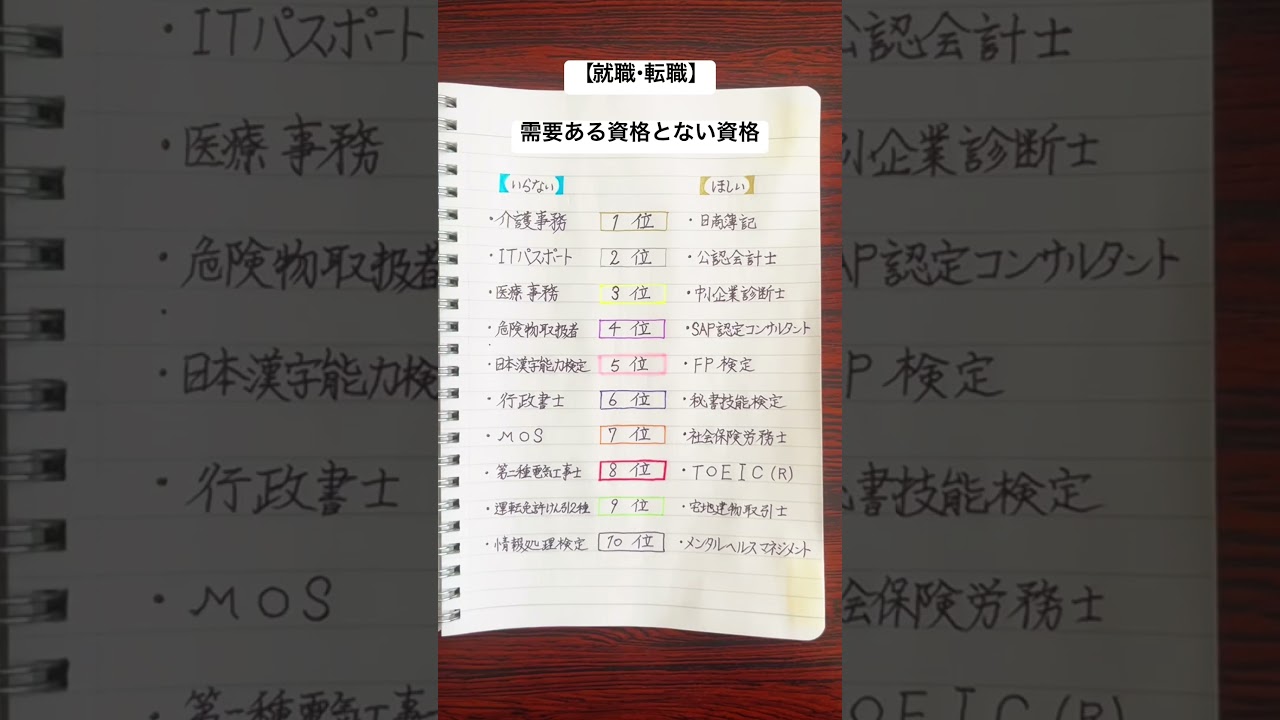 【就職・転職】
需要ある資格とない資格
【いらない】 【ほしい】
・介護事務 1位 ・日商簿記
・ITパスポート 2位 ・公認会計士
・医療事務 3位 ・中小企業診断士
・危険物取扱者 4位 ・SAP認定コンサルタント
・日本漢字能力検定 5位 ・FP検定
・行政書士 6位 ・秘書技能検定
・MOS 7位 ・社会保険労務士
・第二種電気工事士 8位 ・TOEIC(R)
・運転免許けん引2種 9位 ・宅地建物取引士
・情報処理検定 10位 ・メンタルヘルスマネジメント
・ITパスポート
・医療事務
危険物取扱者
日本漢字能力検
・行政書士
・MOS
第二種電気工事
公認会計士
小企業診断士
AP認定コンサルタント
P検定
書技能検定
会保険労務士
OEIC(R)